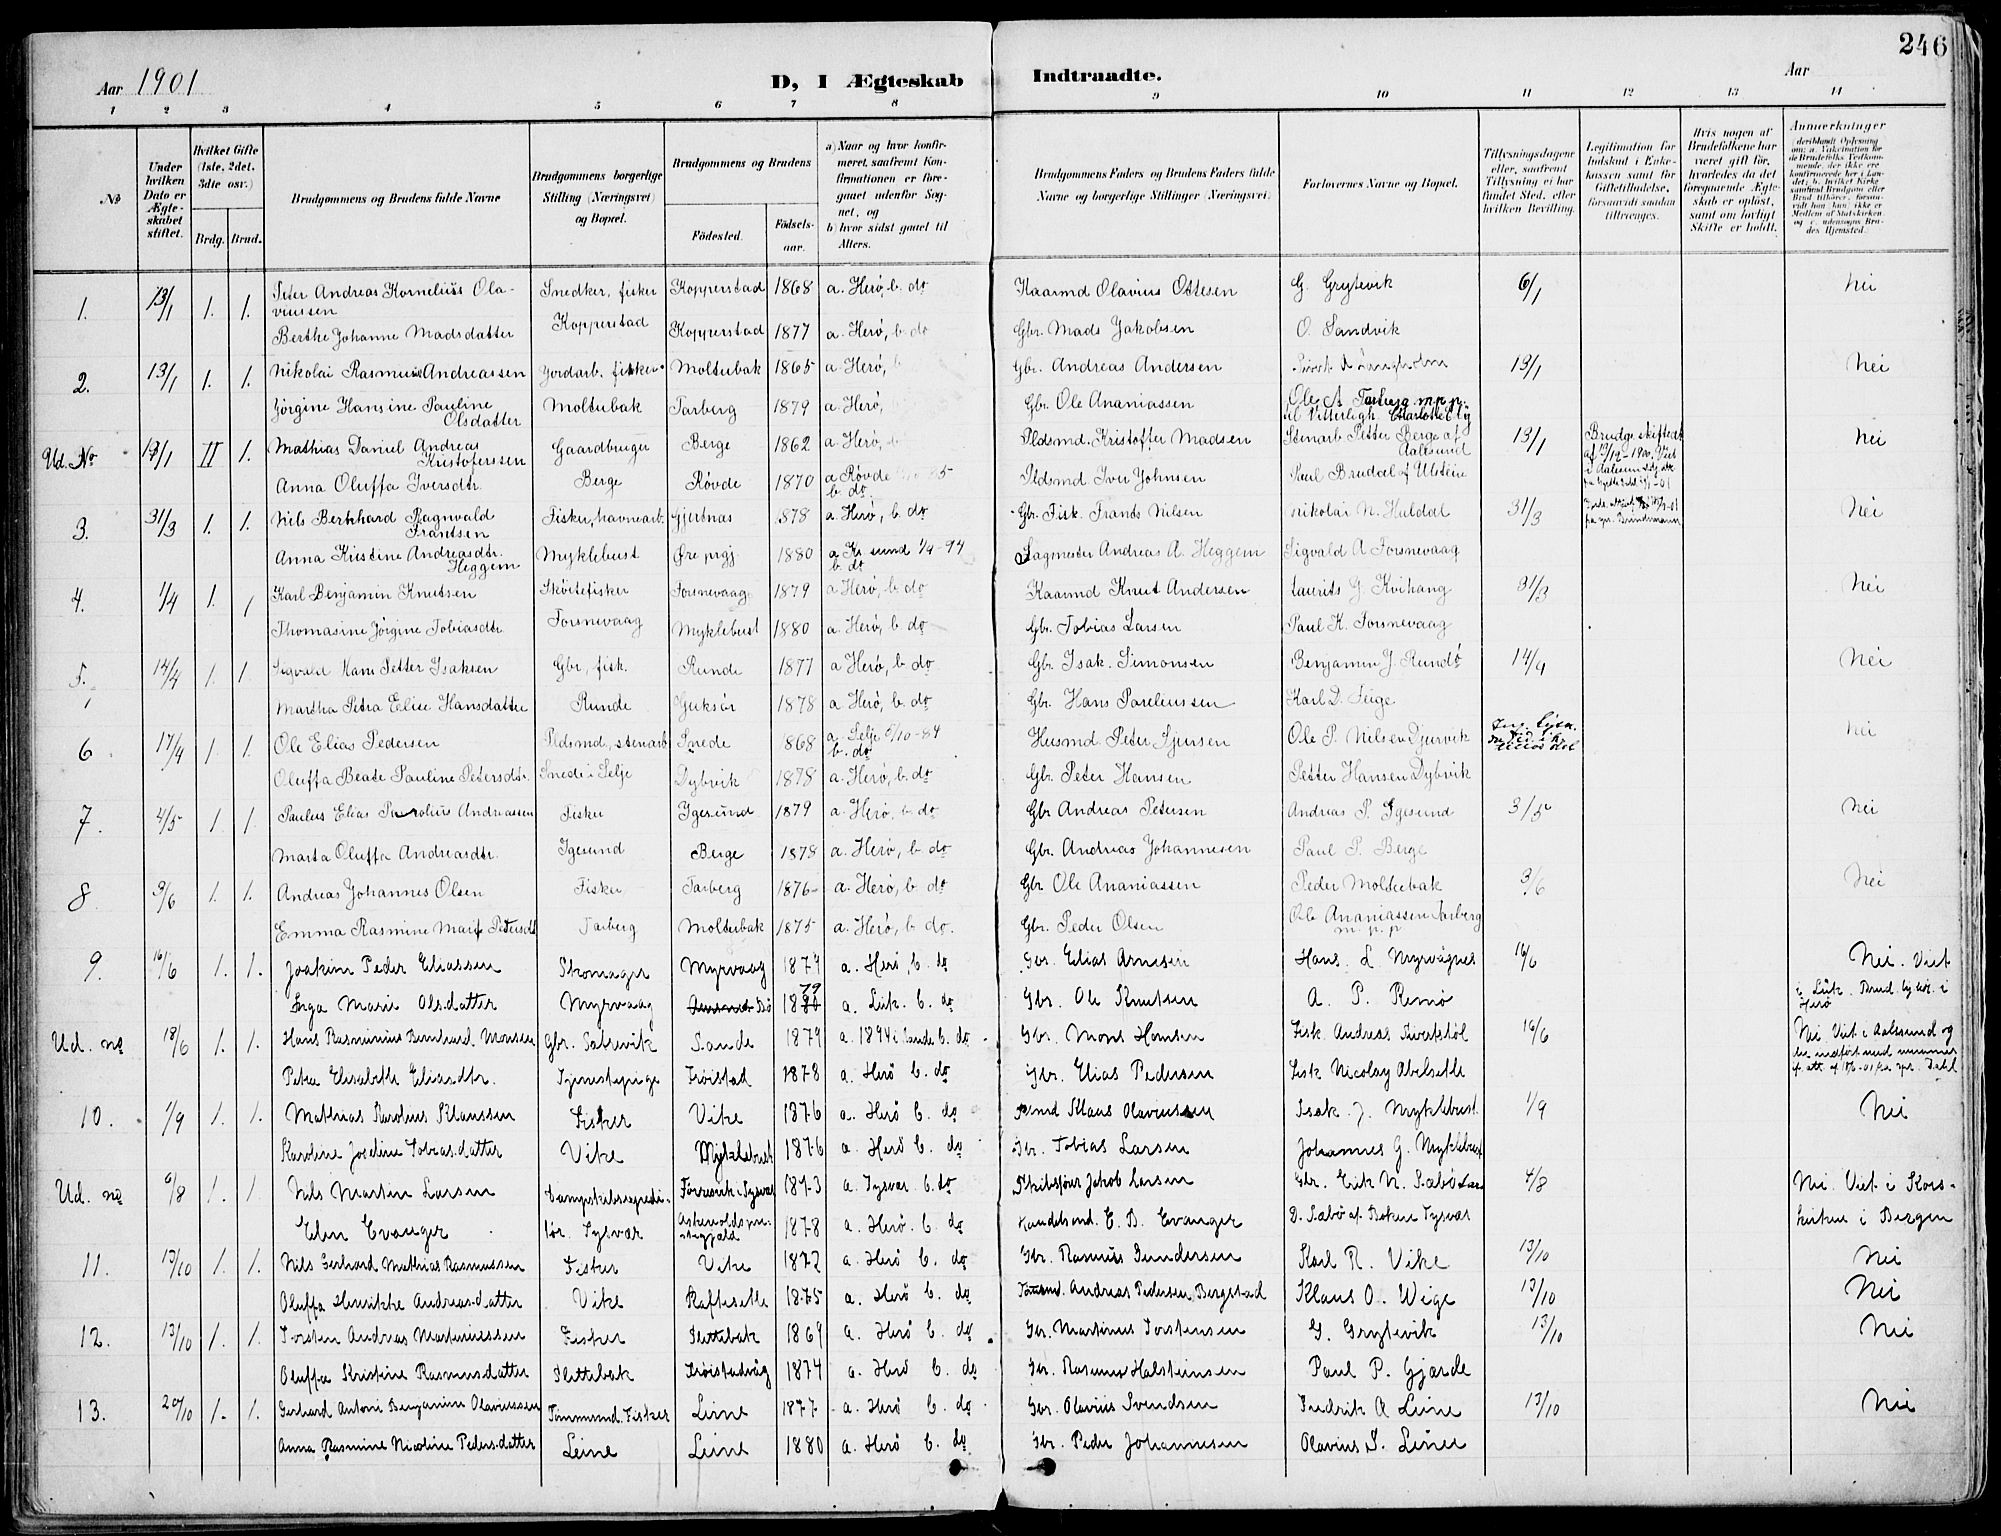 246
Aar 1901
D, I Ægteskab Indtraadte.
Aar
1 2 3 4 5 6 7 8 9 10 11 12 13 14
No
Under hvilken Dato er Ægteskabet stiftet.
Hvilket Gifte (1ste, 2det, 3dte osv.)
Brdg. Brud.
Brudgommens og Brudens fulde Navne
Brudgommens borgerlige Stilling (Næringsvei) og Bopæl.
Brudgommens og Brudens
Fødested. Fødselsaar.
a) Naar og hvor konfirmeret, saafremt Konfirmationen er foregaaet udenfor Sognet, og
b) hvor sidst gaaet til Alters.
Brudgommens Faders og Brudens Faders fulde Navne og borgerlige Stillinger (Næringsvei)
Forlovernes Navne og Bopæl.
Tillysningsdagene eller, saafremt Tillysning ei har fundet Sted, efter hvilken Bevilling.
Legitimation for Indskud i Enkekassen samt for Giftetilladelse, forsaavidt saadan tiltrænges.
Hvis nogen af Brudefolkene har været gift før, hvorledes da det foregaaende Ægteskab er opløst, samt om lovligt Skifte er holdt.
Anmærkninger
1. 13/1 1. 1. Peter Andreas Kornelius Olaviussen Snedker, fisker Kopperstad 1868 a. Herø, b. do Kaarmd Olavius Ottesen G. Grytevik 6/1 Nei
Berthe Johanne Madsdatter Kopperstad Kopperstad 1877 a. Herø, b. do Gbr. Mads Jakobsen O. Sandvik
2. 13/1 1. 1. Nikolai Rasmus Andreassen Jordarb. fisker Moltubak 1865 a. Herø, b Gbr. Andreas Andersen 13/1 Nei
Jørgine Hansine Pauline Olsdatter Moltubak Tarberg 1879 a. Herø, Gbr. Ole Ananiassen Ole A Tarberg m.p.p.
Ud. No 1. Mathias Daniel Andreas Kristofersen Gaardbruger Berge 1862 a. Herø, Pldsmd. Kristoffer Madsen Stenarb. Petter Berge af Aalesund 13/1 Nei
Anna Oluffa Iversdtr. Berge Røvde 1870 a Røvde b. do. Pldsmd Iver Johnsen Paul Brudal af Ulstein
3. 31/3 1. 1. Nils Bernhard Ragnvald Frantsen Fisker, havnearb. Gjertnæs 1878 a. Herø, b. do Gbr. Fisk. Frants Nilsen Nikolai N. Huldal 31/3 Nei
Anna Kristine Andreasdtr. Heggem Myklebust Øre prgj. 1880 a Kr.sund 1/4-94 b. do Sagmester Andreas A. Heggem Sigvald A Torsnevaag
4. 1/4 1. 1 Karl Benjamin Knutsen Skøitefisker Torsnevaag 1879 a Herø, b. do Kaarmd Knut Andersen Laurits G. Kvihang 31/3 Nei
Thomasine Jørgine Tobiasdtr. Torsnevaag Myklebust 1880 a. Herø, b. do Gbr. Tobias Larsen Paul K. Torsnevaag
5. 14/4 1. 1 Sigvald Hans Petter Isaksen Gbr, fisk. Runde 1877 a Herø, b. do Gbr. Isak Simonsen Benjamin J. Rundø 14/4 Nei
Martha Petra Elise Hansdatter Runde 1878 a Herø, b. do Gbr. Hans Pareliussen Karl D.
6 17/4 1. 1. Ole Elias Pedersen Pldsmd, stenarb Snede 1868 a. Selje 5/10-84 b. do Husmd Peter Sjursen Ole P. Nilsen Djurvik Nei
Oluffa Beate Pauline Petersdtr. Snede i Selje Dybvik 1878 a. Herø, b. do Gbr. Peter Hansen Petter Hansen Dybvik
7. 4/5 1. 1. Paulus Elias Karolius Andreassen Fisker Igesund 1879 a. Herø, b. do Gbr Andreas Petersen Andreas P. Igesund 3/5 Nei
Marta Oluffa Andreasdtr. Igesund Berge 1878 a. Herø, b. do Gbr. Andreas Johannesen Paul P. Berge
8 9/6 1. 1. Andreas Johannes Olsen Fisker Tarberg 1876 a. Herø, b. do Gbr Ole Ananiassen Peder Moltubak 3/6 Nei
Emma Rasmine Marie Petersdtr Tarberg Moltubak 1875 a. Herø, b. do. Gbr. Peder Olsen Ole Ananiassen Tarberg m.p.p
9. 16/6 1. 1. Joakim Peder Eliassen Skomager Myrvaag 1874 a. Herø, b. do Gbr. Elias Arnesen Hans. L. Myrvågnes 16/6 Nei. Viet
Inga Marie Olsdatter Myrvaag 1880 79 a. Leik. b. do Gbr. Ole Knutsen A. P. Remø i Leik. Brud. bopæl i Herø
Ud. no 18/6 1. 1. Hans Rasminus Bernhard Monsen Gbr. Sætrevik Sande 1879 a. 1894 i Sande b. do Gbr. Mons Hansen Fisk. Andreas 16/6 Nei Viet i Aalesund og
Petra Elisabeth Eliasdtr. Tjenestepige Frøistad 1878 a. Herø b. do Gbr. Elias Pedersen Fisk Nicolay Abelseth
10. 1/9 1. 1. Mathias Karolius Klaussen Fisker Vike 1876 a. Herø b. do Klaus Olaviussen Isak. J. Myklebust 1/9 Nei
Karoline Joseline Tobiasdatter Vike Myklebust 1876 a. Herø b. do Gbr. Tobias Larsen Johannes G. Myklebust
Ud. no 6/8 1. 1 Nils Martin Larsen Dampskibsexpedi- Førresvik i Tysvær 1873 a. Tysvær. b. do Skibsfører Jakob Larsen Gbr. Eirik N. Sæbø 4/8 Nei. Viet i Kors-
Elen Evanger tør. Tysvær 1878 a. Herø. b. do Handelsmd. E. B. Evanger D. Sæbø af Bokne Tysvær kirken i Bergen
11. 13/10 1. 1. Nils Gerhard Mathias Rasmussen Fisker Vike 1872 a. Herø b. do Gbr. Rasmus Gundersen Karl R. Vike 13/10 Nei
Oluffa Henrikke Andreasdatter Vike Kaftesett 1875 a. Herø b. do Andreas Pedersen Bergstad Klaus O. Wige 13/10 Nei
12. 13/10 1. 1. Torsten Andreas Martinussen Fisker Slettebak 1869 a. Herø b. do Gbr. Martinus Torstensen G. Grytevik 13/10 Nei
Oluffa Kristine Rasmusdatter Slettebak Frøistadvåg 1874 a. Herø b. do Gbr. Rasmus Halsteinsen Paul P. Gjærde
13. 20/10 1. 1. Gerhard Antoni Benjamin Olaviussen Tømmermd. Fisker Leine 1877 a. Herø b. do Gbr. Olavius Svendsen Fredrik A Leine 13/10 Nei
Anna Rasmine Nicoline Pedersdatter Leine Leine 1880 a. Herø b. do Gbr. Peder Johannesen Olavius S. Leine